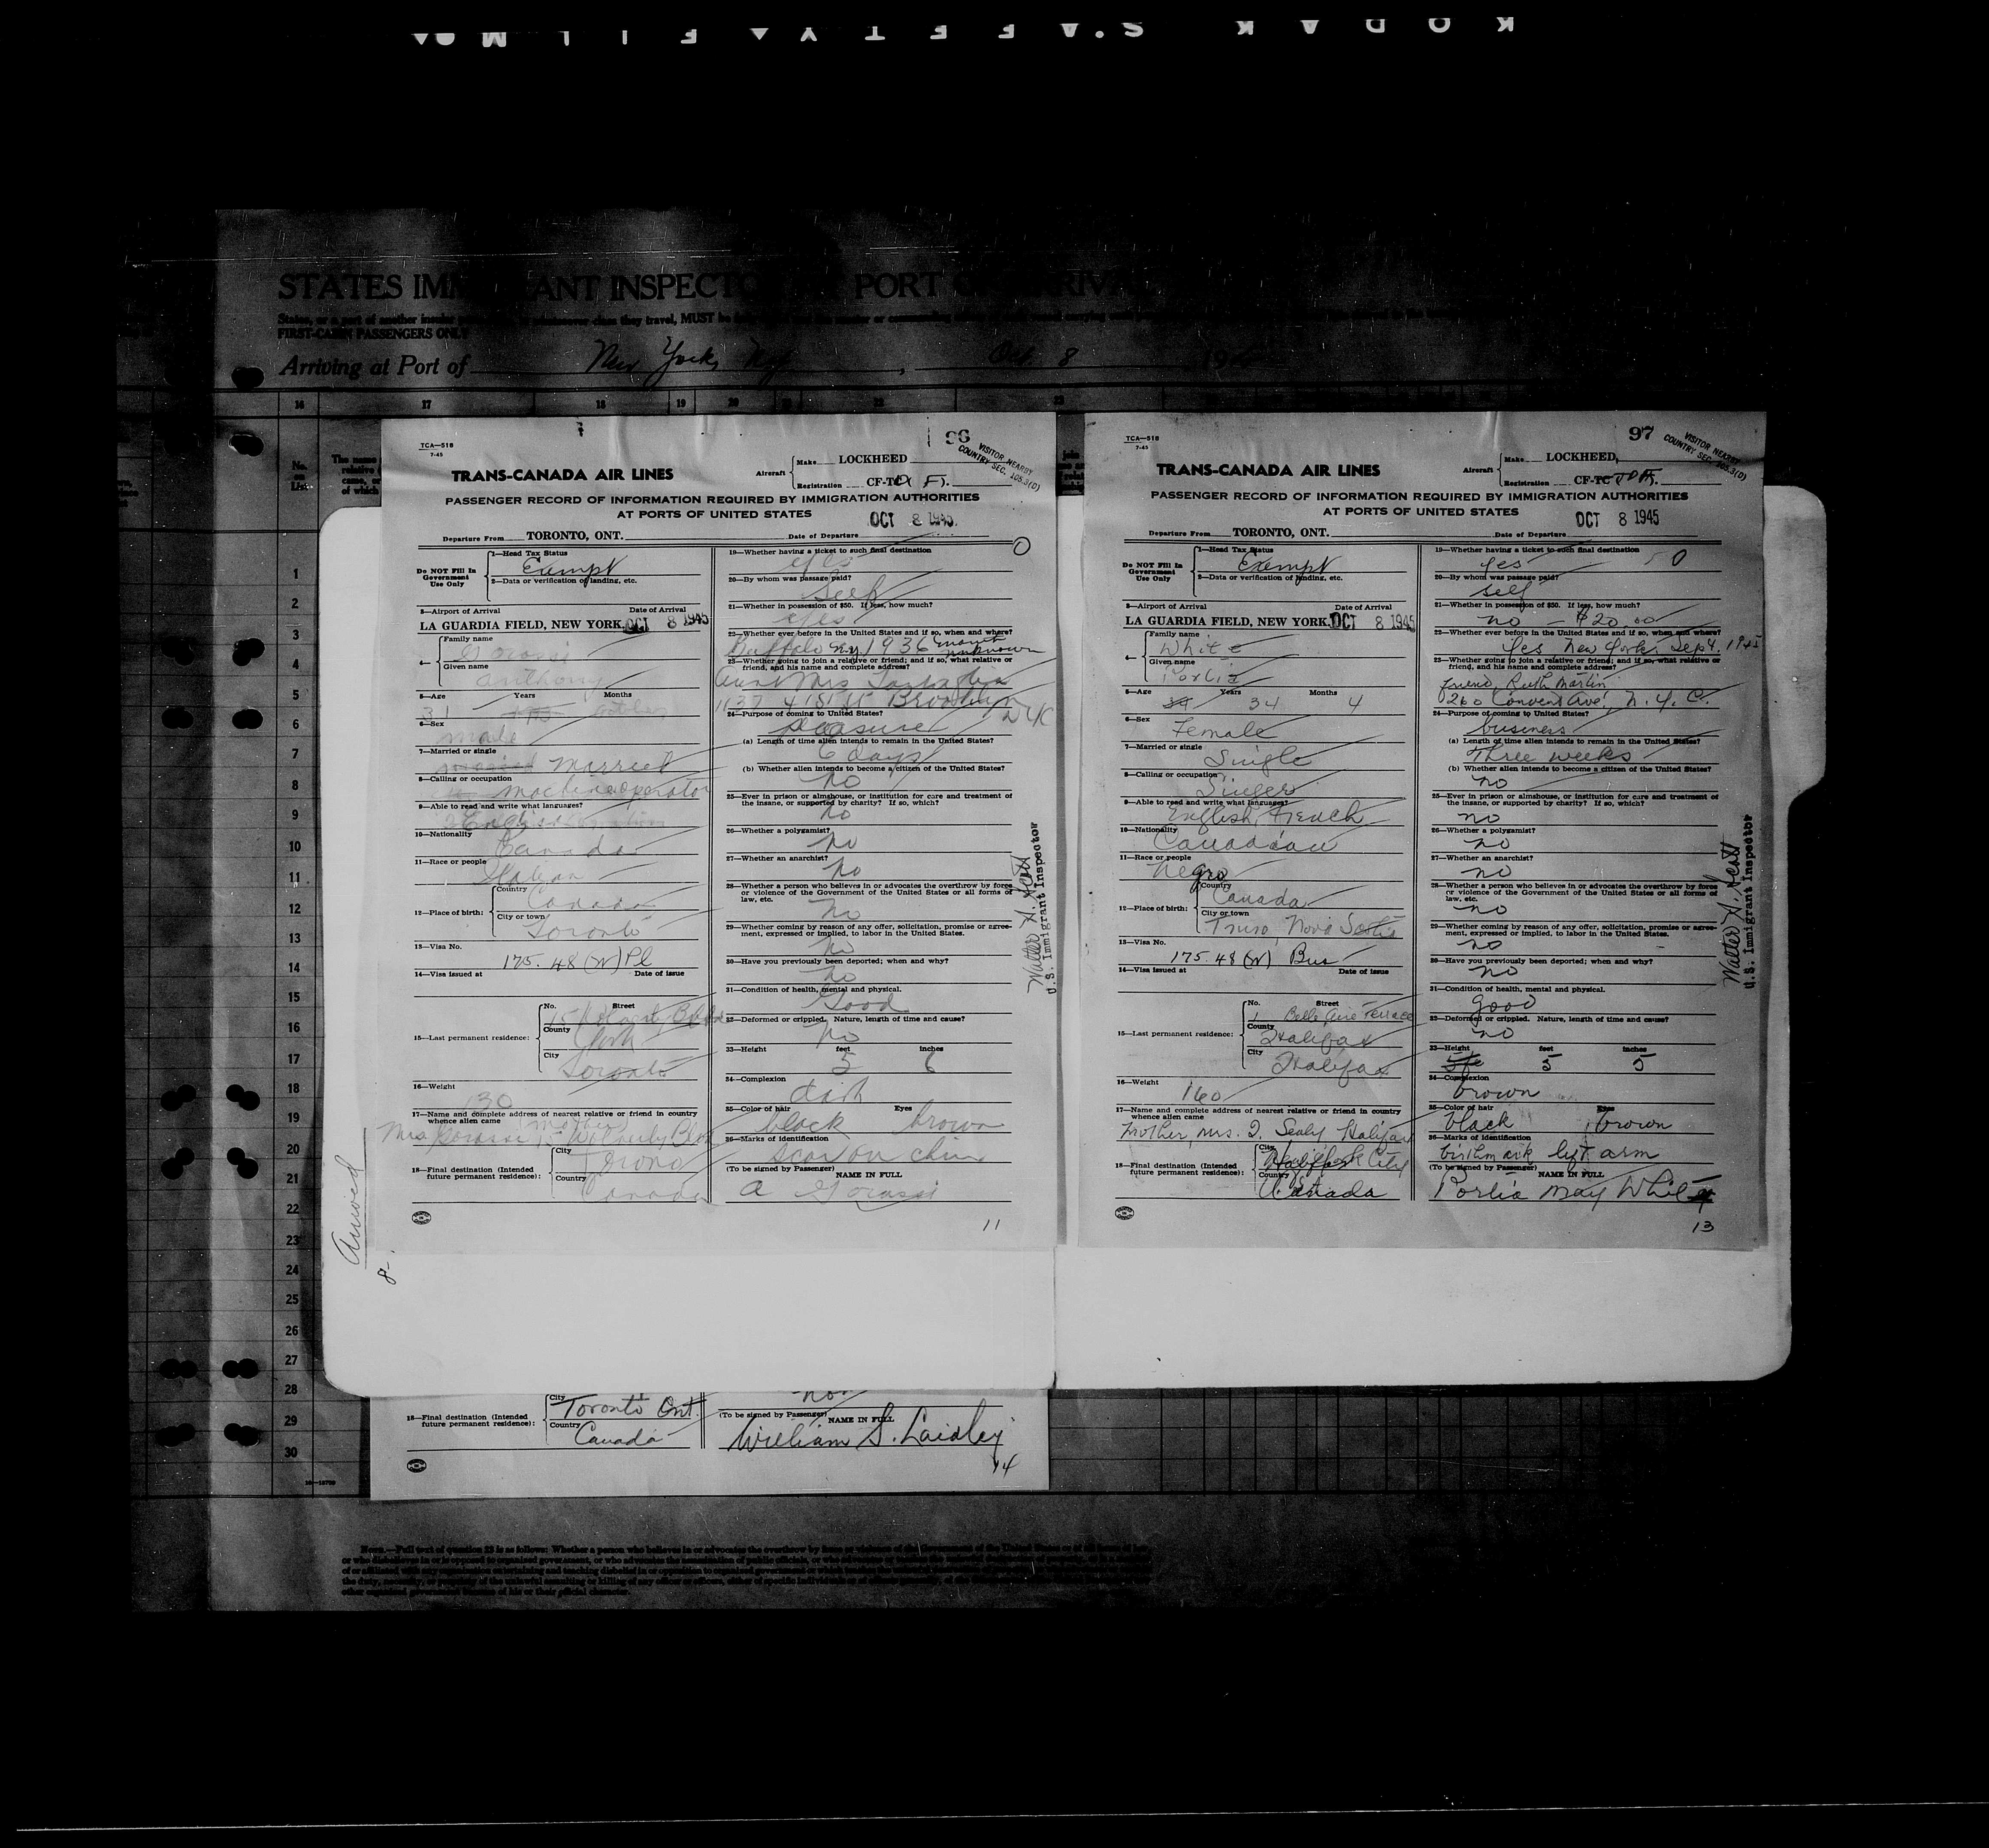 KODAK SAFETY FILM
STATES IMMIGRANT INSPECTOR AT PORT OF ARRIVAL
FIRST-CABIN PASSENGERS ONLY
Arriving at Port of New York, NY, Oct. 8
16 17 18 19 20 22 23
No. on List
TCA—518
7-45
96
VISITOR NEARBY
COUNTRY SEC. 105.3(D)
TRANS-CANADA AIR LINES
Aircraft
Make LOCKHEED
Registration CF-TC
PASSENGER RECORD OF INFORMATION REQUIRED BY IMMIGRATION AUTHORITIES
AT PORTS OF UNITED STATES
OCT 8 1945
Departure From TORONTO, ONT. Date of Departure
Do NOT Fill In Government Use Only
1—Head Tax Status
Exempt
2—Data or verification of landing, etc.
3—Airport of Arrival Date of Arrival
LA GUARDIA FIELD, NEW YORK. OCT 8 1945
4— Family name
Given name
Anthony
5—Age Years Months
31
6—Sex
male
7—Married or single
Married
8—Calling or occupation
machine operator
9—Able to read and write what languages?
10—Nationality
Canada
11—Race or people
Italian
12—Place of birth:
Country
Canada
City or town
Toronto
13—Visa No.
175.48 (N) Pl
14—Visa issued at Date of issue
15—Last permanent residence:
No. Street
15
County
York
City
Toronto
16—Weight
130
17—Name and complete address of nearest relative or friend in country
whence alien came
(mother)
Mrs
18—Final destination (Intended
future permanent residence):
City
Toronto
Country
Canada
19—Whether having a ticket to such final destination
yes
20—By whom was passage paid?
Self
21—Whether in possession of $50. If less, how much?
yes
22—Whether ever before in the United States and if so, when and where?
Buffalo N.Y. 1936 month unknown
23—Whether going to join a relative or friend; and if so, what relative or
friend, and his name and complete address?
Aunt Mrs
Brooklyn
NYC
24—Purpose of coming to United States?
pleasure
(a) Length of time alien intends to remain in the United States?
6 days
(b) Whether alien intends to become a citizen of the United States?
no
25—Ever in prison or almshouse, or institution for care and treatment of
the insane, or supported by charity? If so, which?
no
26—Whether a polygamist?
no
27—Whether an anarchist?
no
28—Whether a person who believes in or advocates the overthrow by force
or violence of the Government of the United States or all forms of
law, etc.
no
29—Whether coming by reason of any offer, solicitation, promise or agree-
ment, expressed or implied, to labor in the United States.
no
30—Have you previously been deported; when and why?
no
31—Condition of health, mental and physical.
Good
32—Deformed or crippled. Nature, length of time and cause?
no
33—Height feet inches
5 6
34—Complexion
dark
35—Color of hair Eyes
black brown
36—Marks of identification
scar on chin
(To be signed by Passenger) NAME IN FULL
11
Walter A. Scott
U.S. Immigrant Inspector
TCA—518
7-45
97
VISITOR NEARBY
COUNTRY SEC. 105.3(D)
TRANS-CANADA AIR LINES
Aircraft
Make LOCKHEED,
Registration CF-TC
PASSENGER RECORD OF INFORMATION REQUIRED BY IMMIGRATION AUTHORITIES
AT PORTS OF UNITED STATES
OCT 8 1945
Departure From TORONTO, ONT. Date of Departure
Do NOT Fill In Government Use Only
1—Head Tax Status
Exempt
2—Data or verification of landing, etc.
3—Airport of Arrival Date of Arrival
LA GUARDIA FIELD, NEW YORK. OCT 8 1945
4— Family name
White
Given name
Portia
5—Age Years Months
34 4
6—Sex
Female
7—Married or single
Single
8—Calling or occupation
Singer
9—Able to read and write what languages?
English, French
10—Nationality
Canadian
11—Race or people
Negro
12—Place of birth:
Country
Canada
City or town
Truro, Nova Scotia
13—Visa No.
175.48 (N) Bus
14—Visa issued at Date of issue
15—Last permanent residence:
No. Street
1 Belle Aire Terrace
County
Halifax
City
Halifax
16—Weight
160
17—Name and complete address of nearest relative or friend in country
whence alien came
Mother, Mrs. Sealy, Halifax
18—Final destination (Intended
future permanent residence):
City
New York City
Country
Canada
19—Whether having a ticket to such final destination
yes
20—By whom was passage paid?
self
21—Whether in possession of $50. If less, how much?
no – $20.00
22—Whether ever before in the United States and if so, when and where?
Yes New York, Sept. 1945
23—Whether going to join a relative or friend; and if so, what relative or
friend, and his name and complete address?
friend, Ruth Martin
260 Convent Ave., N.Y.C.
24—Purpose of coming to United States?
business
(a) Length of time alien intends to remain in the United States?
Three weeks
(b) Whether alien intends to become a citizen of the United States?
no
25—Ever in prison or almshouse, or institution for care and treatment of
the insane, or supported by charity? If so, which?
no
26—Whether a polygamist?
no
27—Whether an anarchist?
no
28—Whether a person who believes in or advocates the overthrow by force
or violence of the Government of the United States or all forms of
law, etc.
no
29—Whether coming by reason of any offer, solicitation, promise or agree-
ment, expressed or implied, to labor in the United States.
no
30—Have you previously been deported; when and why?
no
31—Condition of health, mental and physical.
good
32—Deformed or crippled. Nature, length of time and cause?
no
33—Height feet inches
5 5
34—Complexion
brown
35—Color of hair Eyes
black brown
36—Marks of identification
birthmark left arm
(To be signed by Passenger) NAME IN FULL
Portia May White
13
Walter A. Scott
U.S. Immigrant Inspector
1
2
3
4
5
6
7
8
9
10
11
12
13
14
15
16
17
18
19
20
21
22
23
24
25
26
27
28
29
30
18—Final destination (Intended
future permanent residence):
City
Toronto Ont.
Country
Canada
(To be signed by Passenger) NAME IN FULL
William S. Laidley
14